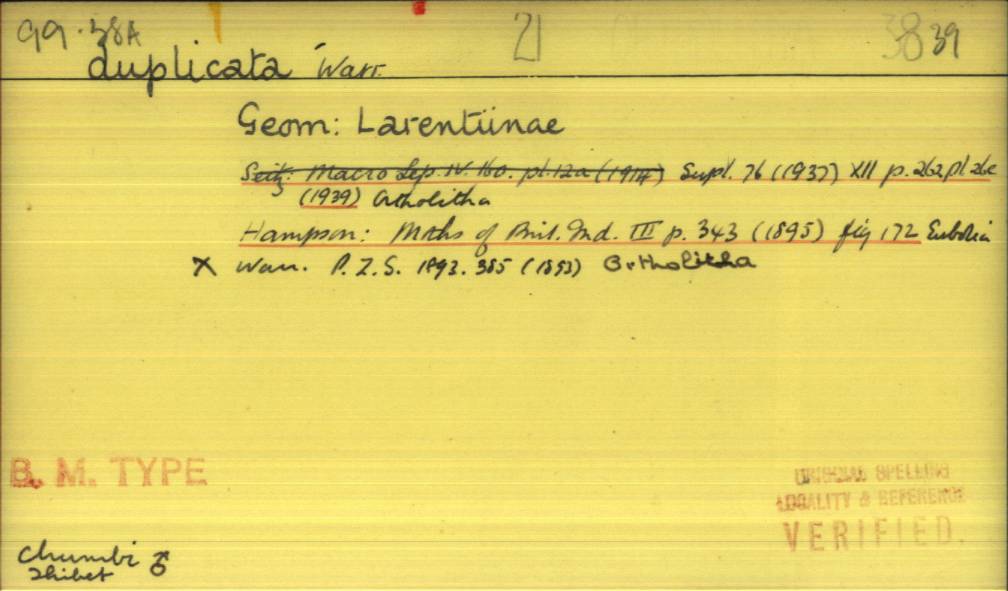 99.38A 21 38 39
duplicata Warr.
Geom: Larentiinae
Seitz: Macro Lep. IV. 160. pl. 12a (1914) Supl. 76 (1937) XII p. 262 pl. 26c
(1939) Ortholitha
Hampson: Moths of Brit. Ind. III p. 343 (1895) fig 172 Eubolia
X Warr. P.Z.S. 1893. 385 (1893) Ortholitha
B. M. TYPE
ORIGINAL SPELLING
LOCALITY & REFERENCE
VERIFIED.
Chumbi ♂
Thibet